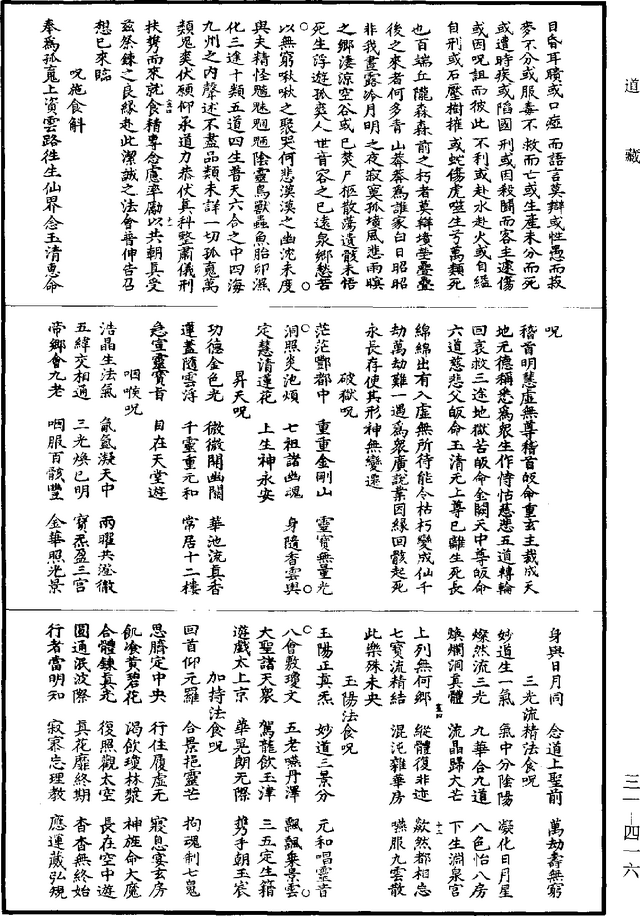 道藏
目昏耳聵或口瘂而語言莫辯或性愚而菽
麥不分或服毒不救而亡或生產未分而死
或遭時疾或陷國刑或因殺鬪而客主遽傷
或因呪詛而彼此不利或赴水赴火或自縊
自刑或石壓樹摧或蛇傷虎噬生亏萬類死
也百端丘隴森森前之朽者莫辯墳塋壘壘
後之來者何多青山莽莽爲誰家白日昭昭
非我晝露冷月明之夜寂寞孤墳風悲雨暝
之鄉淒涼空谷或已焚尸柩散蕩遺骸未悟
死生浮遊孤爽人世音容之已遠泉鄉愁苦
以無窮啾啾之聚哭何悲漠漠之幽沈未度
與夫精怪魑魅魍魎陰靈鳥獸蟲魚胎卵濕
化三途十類五道四生普天六合之中四海
九州之內聲述不盡品類未詳一切孤䰟萬
類䰟爽伏願仰承道力恭伏真科整肅儀刑
扶擕而來就食精專念慮率勵以共朝真受
兹祭鍊之良緣赴此潔誠之法會普伸告召
想已來臨
呪施食斛
奉爲孤䰟上資雲路徃生仙界念玉清惠命
呪
稽首明慧虛無尊稽首皈命重玄主裁成天
地元德稱悉爲衆生作恃怙慈悲五道轉輪
回哀救三途地獄苦皈命金闕天中尊皈命
六道慈悲父皈命玉清元上尊已離生死長
綿綿出有入虛無所待能令枯朽變成仙千
劫萬劫難一遇爲衆廣說業因緣回骸起死
永長存使其形神無變遷
破獄呪
茫茫酆都中 重重金剛山 靈寶無量光
洞照炎池煩 七祖諸幽魂 身隨香雲輿
定慧清蓮花 上生神永安
昇天呪
功德金色光 微微開幽關 華池流真香
蓮蓋隨雲浮 千靈重元和 常居十二樓
急宣靈寶音 自在天堂遊
咽喉呪
浩晶生法氣 氤氳凝天中 兩曜共澄徹
五緯交相通 三光煥已明 寶炁盈三宮
帝鄉會九老 咽服百骸豐 金華照光景
身與日月同 念道上聖前 萬劫壽無窮
三光流精法食呪
妙道生一氣 氣中分陰陽 凝化日月星
燦然流三光 九華合九道 八色怡八房
煥爛洞真體 流晶歸大芒 下生淵泉宮
上列無何鄉 縱體復非迹 歘然都相忘
七寶流精結 混沌雜華房 嚥服九雲散
此樂殊未央
玉陽法食呪
玉陽正真炁 妙道三景分 元和唱靈音
八會敷瓊文 五老嚥丹澤 飄飄乗景雲
大聖諸天衆 駕龍飲玉津 三五定生籍
遊戲太上京 華晃朗无際 擕手朝玉宸
加持法食呪
回首仰元羅 合景挹靈芒 拘魂制七䰟
思臍定中央 行住履虛无 寢息宴玄房
飢飡黃碧花 渴飲瓊林漿 神旌命大魔
合體鍊真光 復照觀太空 長在空中遊
圓通泯波際 真花靡終期 杳杳無終始
行者當明知 寂寂忘理教 應運藏弘規
三一—四一六